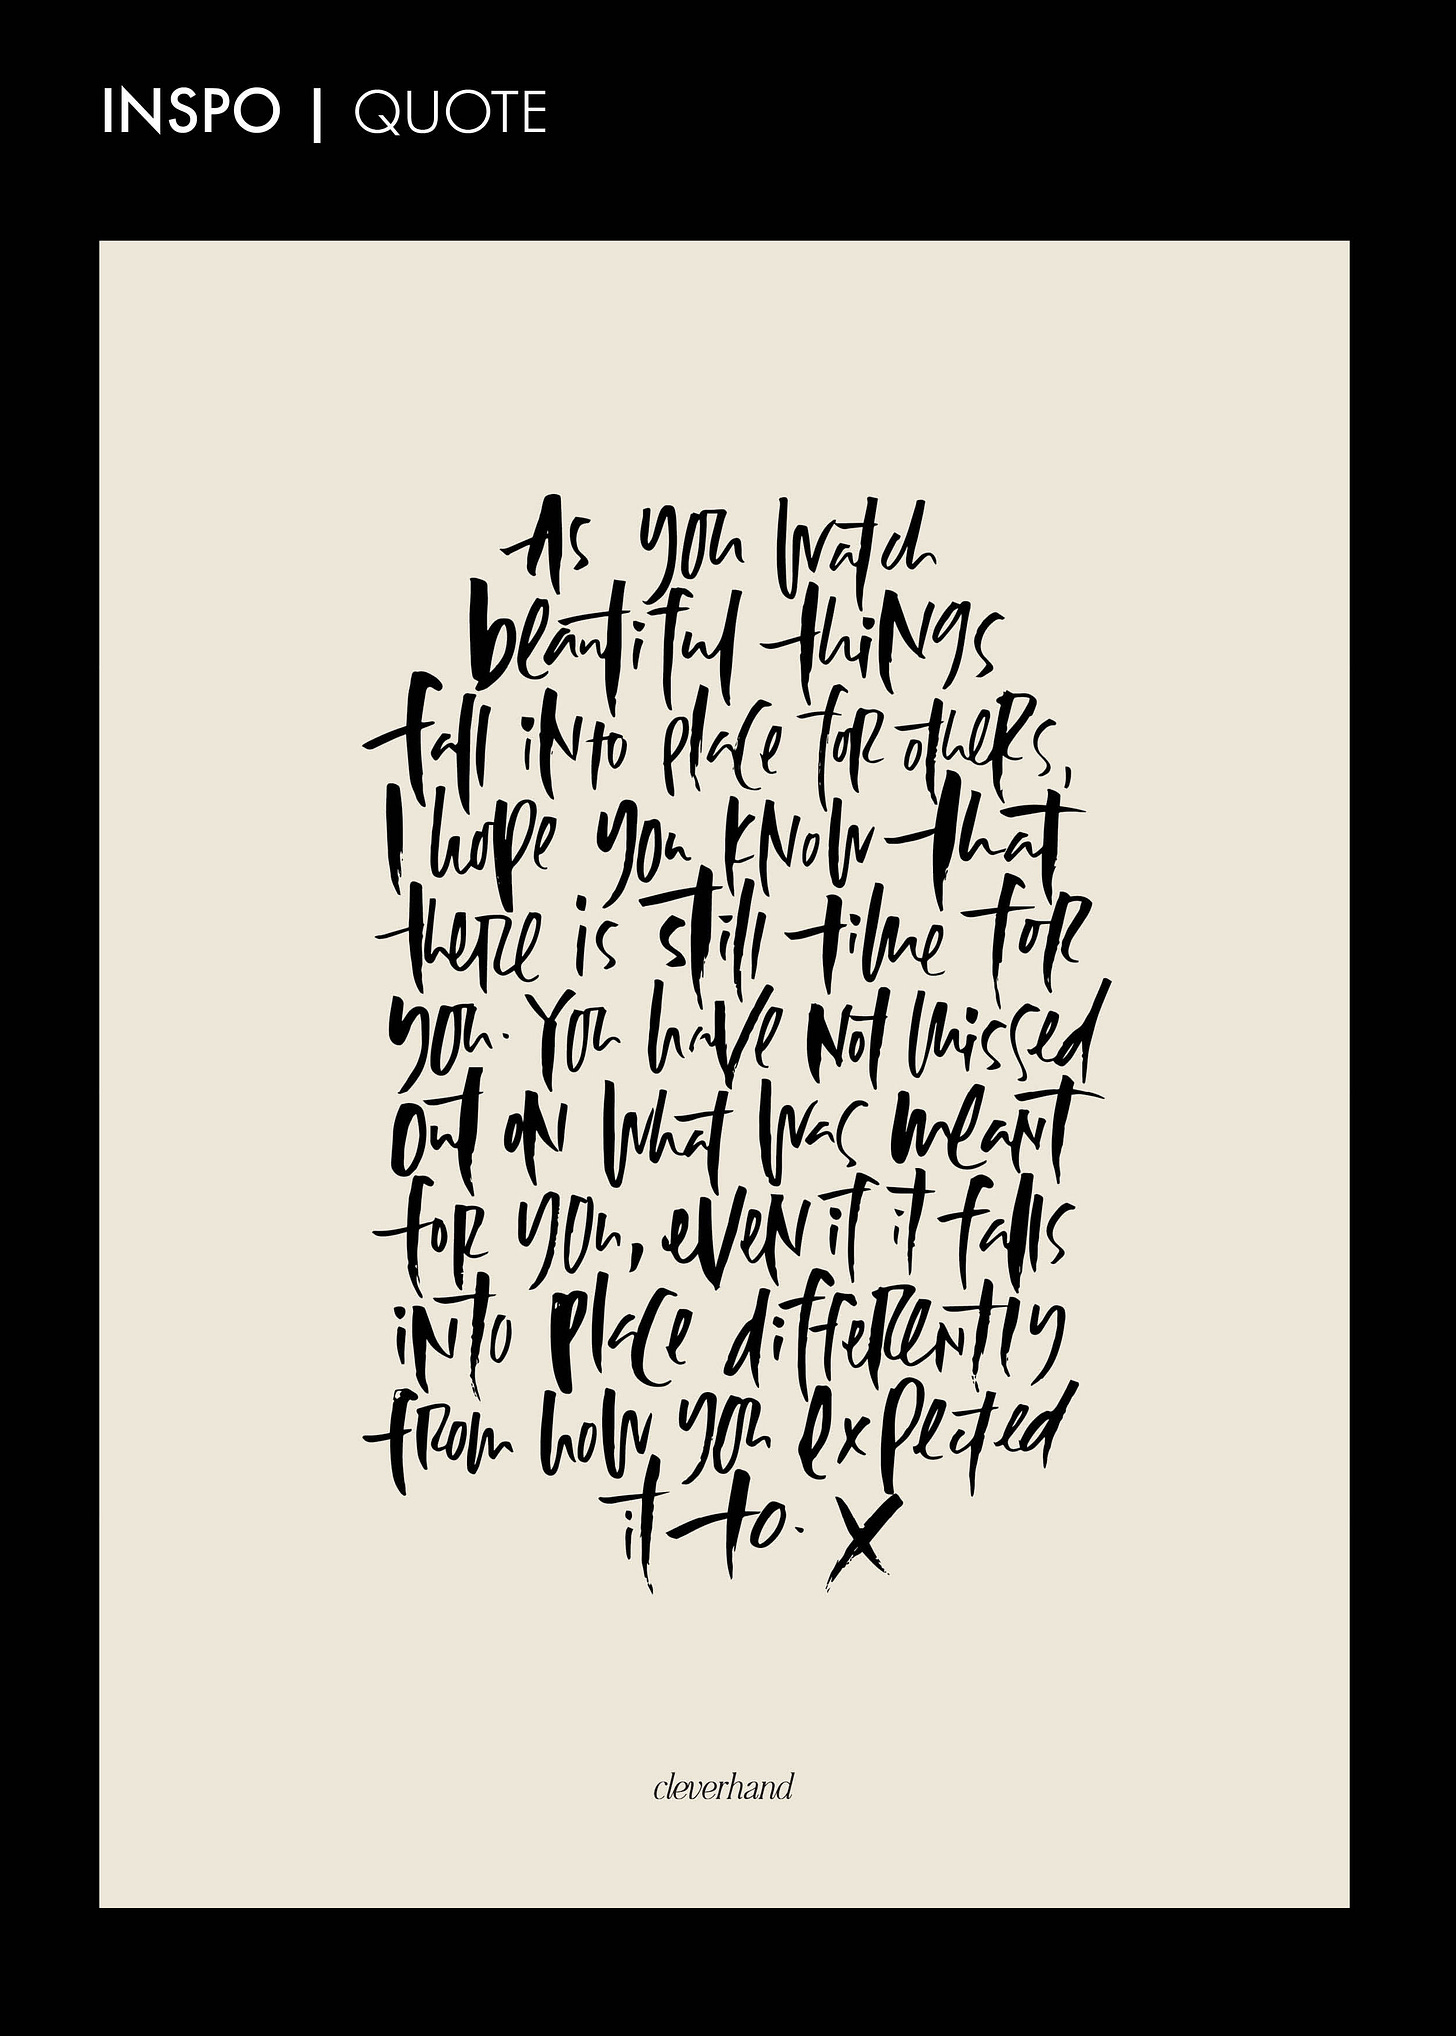 INSPO | QUOTE
As you watch
beautiful things
fall into place for others,
I hope you know that
there is still time for
you. You have not missed
out on what was meant
for you, even if it falls
into place differently
from how you expected
it to. X
cleverhand